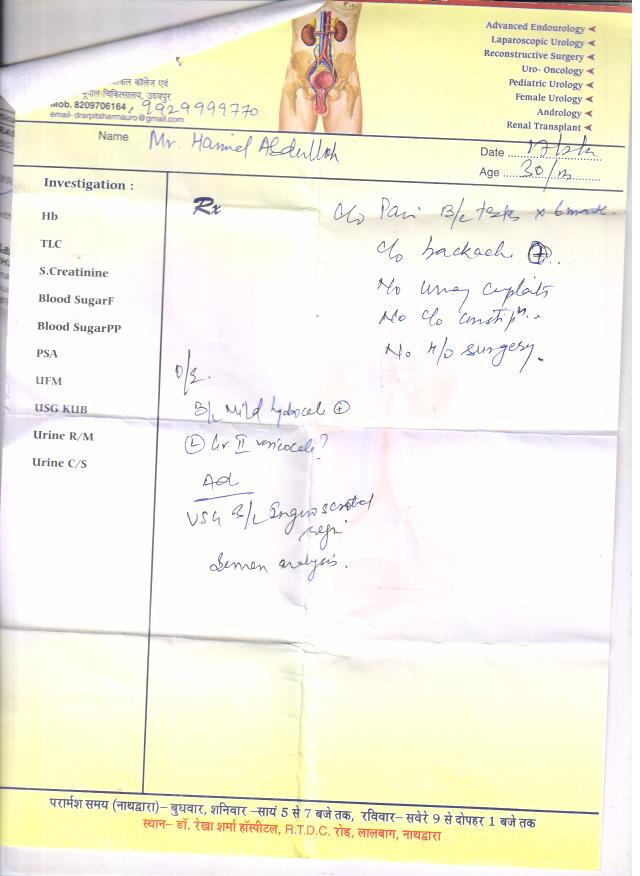 Advanced Endourology
Laparoscopic Urology
Reconstructive Surgery
Uro- Oncology
Pediatric Urology
Female Urology
Andrology
Renal Transplant
कॉलेज एवं
भूपाल चिकित्सालय, उदयपुर
Mob. 8209706164, 9929999770
email- drarpitsharmauro@gmail.com
Name Mr. Hamid Abdullah
Date
Age 30/m
Investigation :
Hb
TLC
S.Creatinine
Blood SugarF
Blood SugarPP
PSA
UFM
USG KUB
Urine R/M
Urine C/S
Rx
C/o Pain B/L testis x 6 month
C/o backache +
No c/o constipn.
No H/o surgery.
O/E.
B/L Mild hydrocele +
(L) Gr II varicocele?
Ad
USG B/L Inguinoscrotal
region
Semen analysis.
परार्मश समय (नाथद्वारा)– बुधवार, शनिवार –सायं 5 से 7 बजे तक, रविवार– सवेरे 9 से दोपहर 1 बजे तक
स्थान– डॉ. रेखा शर्मा हॉस्पीटल, R.T.D.C. रोड़, लालबाग, नाथद्वारा